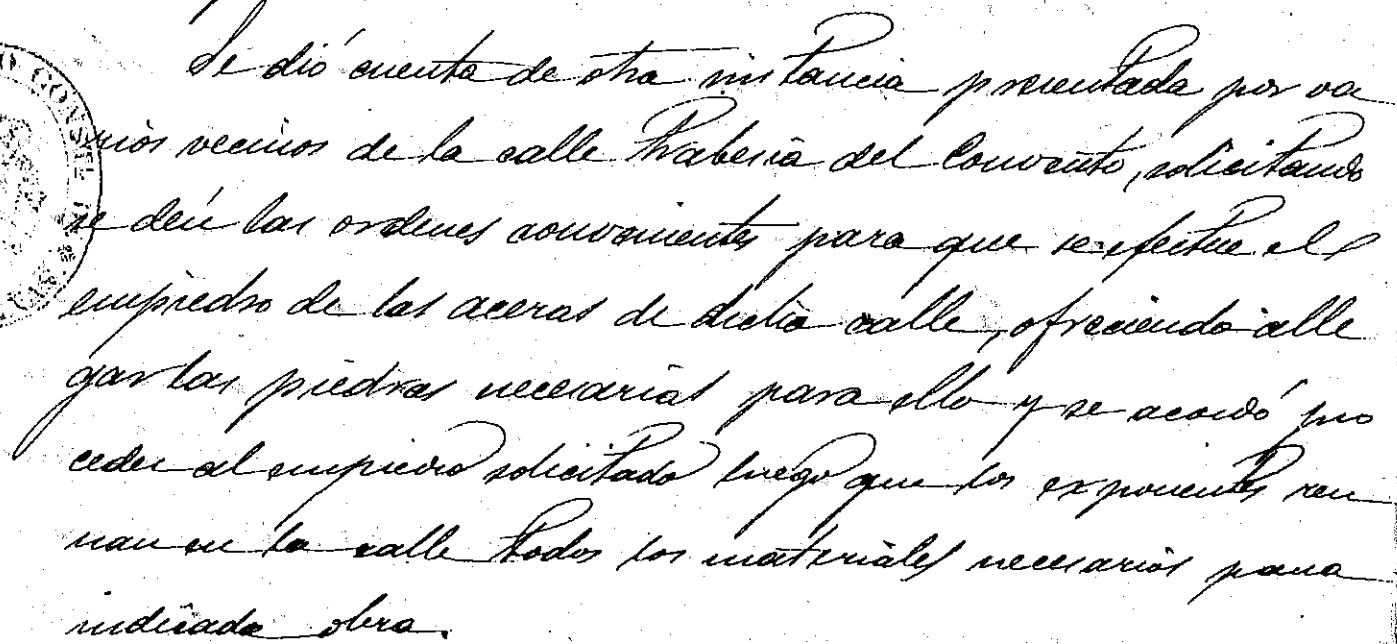 Se dió cuenta de otra instancia presentada por va
rios vecinos de la calle Trabesia del Convento, solicitando
se den las ordenes convenientes para que se efectue el
empiedro de las aceras de dicha calle, ofreciendo alle
gar las piedras necesarias para ello y se acordó pro
ceder al empiedro solicitado luego que los exponentes reu
nan en la calle todos los materiales necesarios para
indicada obra.